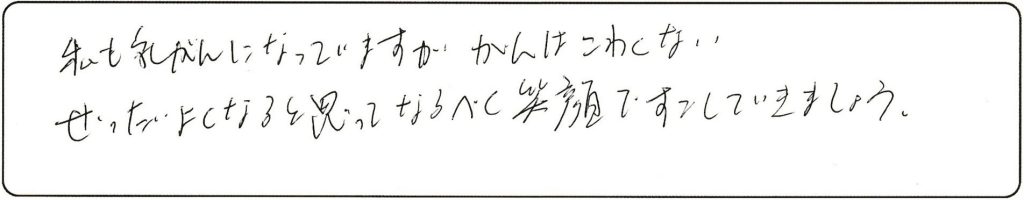 私も乳がんになっていますが がんはこわくない
ぜったいよくなると思ってなるべく笑顔ですごしていきましょう。